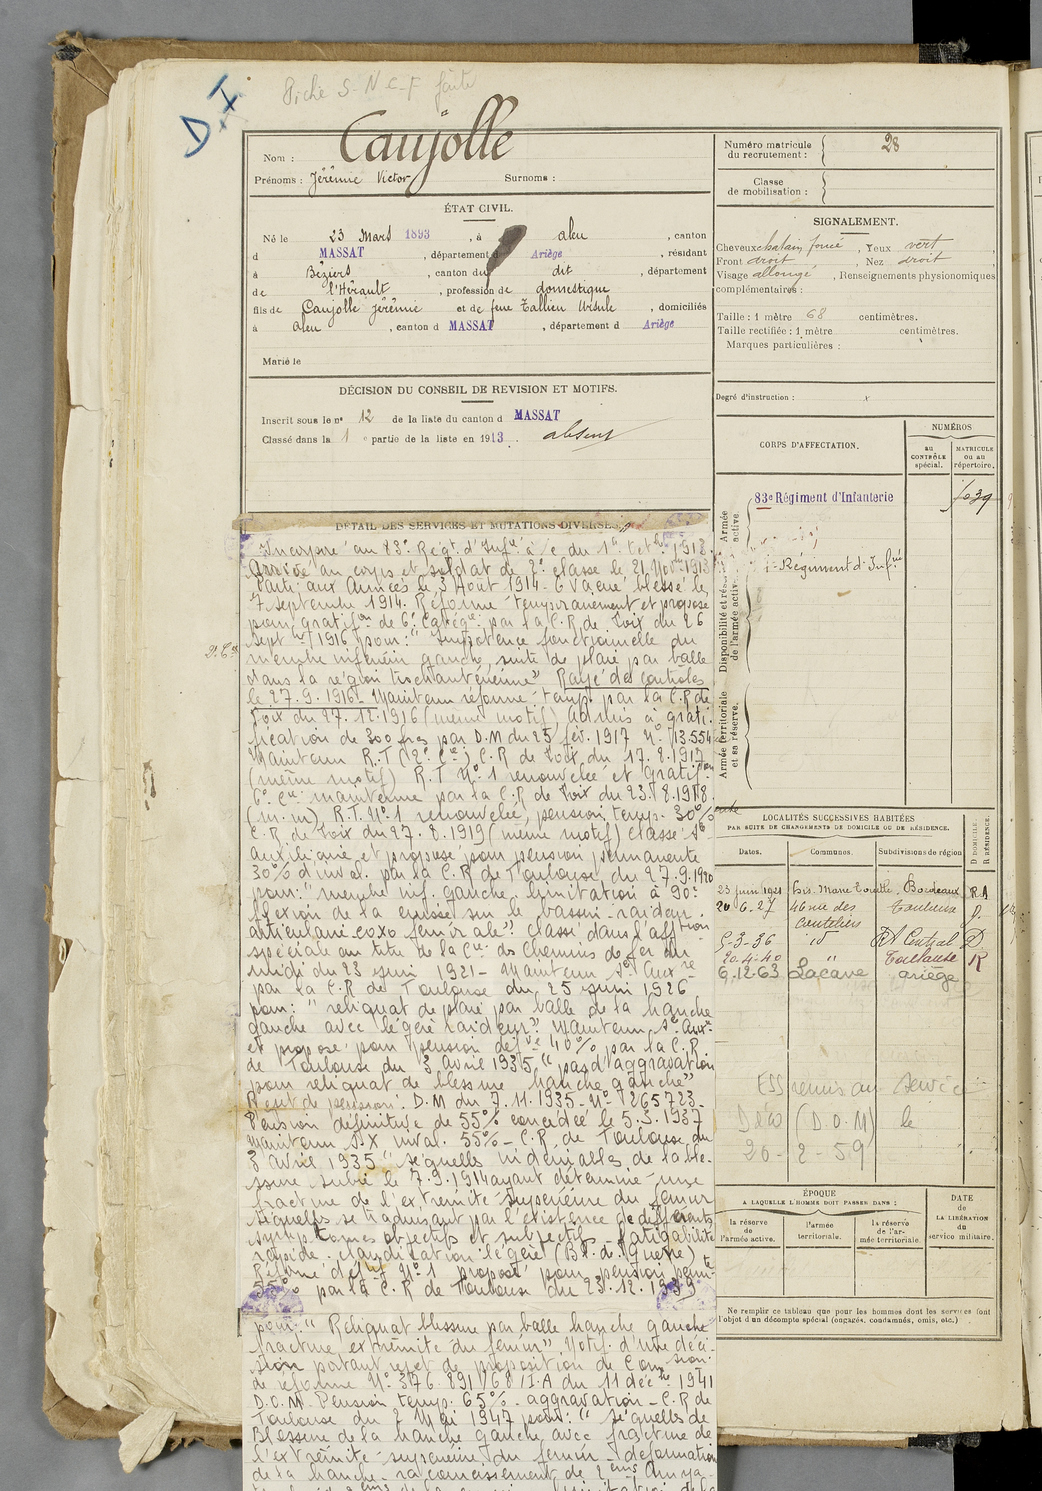 Fiche S.N.C.F faite
D.I
Nom : Caujolle
Prénoms : Jérémie Victor Surnoms :
ÉTAT CIVIL.
Né le 23 Mars 1893, à aleu, canton
d MASSAT, département d Ariège, résidant
à Béziers, canton du dit, département
de l'Hérault, profession de domestique
fils de Caujolle Jérémie et de feue Tallieu Ursule, domiciliés
à aleu, canton d MASSAT, département d Ariège
Marié le
DÉCISION DU CONSEIL DE REVISION ET MOTIFS.
Inscrit sous le n° 12 de la liste du canton d MASSAT
Classé dans la 1e partie de la liste en 1913. absent
DÉTAIL DES SERVICES ET MUTATIONS DIVERSES.
Incorporé au 83e Régt d'Infie à c. du 1er Octbre 1913.
Arrivé au corps et soldat de 2e classe le 21 Novbre 1913
Parti aux Armées le 3 Août 1914. Evacué blessé le
7 septembre 1914. Réformé temporairement et proposé
pour gratifon de 6e Catégie par la C.R de Foix du 26
Septbre 1916 pour: "Impotence fonctionnelle du
membre inférieur gauche, suite de plaie par balle
dans la région trochantérienne" Rayé des contrôles
le 27.9.1916. Maintenu réformé temps par la C.R de
Foix du 27.12.1916 (même motif) Admis à grati-
fication de 300 frs par D.M du 25 fév. 1917 N° 13554
Maintenu R.T (2e Cie) C.R de Foix du 17.8.1917
(même motif) R.T N°1 renouvelée et gratifon
6e Cie maintenue par la C.R de Foix du 23.8.1918.
(m.m), R.T. N°1 renouvelée, pension temp. 30%
C.R de Foix du 27.8.1919 (même motif) Classé Sce
auxiliaire et proposé pour pension permanente
30% d'inval. par la C.R de Toulouse du 27.9.1920
pour: "membre inf. gauche, limitation à 90°
flexion de la cuisse sur le bassin - raideur
articulaire coxo fémorale" Classé dans l'affon
spéciale au titre de la Cie des Chemins de fer du
Midi du 23 juin 1921 - Maintenu Sce Auxre
par la C.R de Toulouse du 25 juin 1926
pour: "reliquat de plaie par balle de la hanche
gauche avec légère raideur" Maintenu Sce Auxre
et proposé pour pension défve 40% par la C.R
de Toulouse du 3 avril 1935 "pas d'aggravation
pour reliquat de blessure hanche gauche"
Rejet de pension. D.M du 7.11.1935 - N° 265723 -
Pension définitive de 55% concédée le 5.3.1937
Maintenu SX inval. 55% - C.R de Toulouse du
3 avril 1935 "séquelles indéniables de la ble-
ssure subie le 7.9.1914 ayant déterminé une
fracture de l'extrémité supérieure du fémur
séquelles se traduisant par l'existence de différents
symptômes objectifs et subjectifs - Fatigabilité
rapide. claudication légère (Bl. de guerre)
Réformé défif N°1 proposé pour pension permte
55% par la C.R de Toulouse du 23.12.1939
pour: "Reliquat blessure par balle hanche gauche
fracture extrémité du fémur" Notif. d'une déci-
sion portant rejet de proposition de Commission
de réforme N° 376.891/68/I.A du 11 décbre 1941
D.O.M. Pension temp. 65% - aggravation - C.R de
Toulouse du 2 Mai 1947 pour: "séquelles de
Blessure de la hanche gauche avec fracture de
l'extrémité supérieure du fémur - déformation
de la hanche - raccourcissement de 2 cms
Numéro matricule du recrutement : 28
Classe de mobilisation :
SIGNALEMENT.
Cheveux chatain foncé, Yeux vert,
Front droit, Nez droit,
Visage allongé, Renseignements physionomiques
complémentaires :
Taille : 1 mètre 68 centimètres.
Taille rectifiée : 1 mètre centimètres.
Marques particulières :
Degré d'instruction : x
CORPS D'AFFECTATION.
NUMÉROS
au CONTRÔLE spécial.
MATRICULE ou au répertoire.
Armée active.
83e Régiment d'Infanterie
Régiment d'Infie
Disponibilité et réserve de l'armée active.
Armée territoriale et sa réserve.
LOCALITÉS SUCCESSIVES HABITÉES
PAR SUITE DE CHANGEMENTS DE DOMICILE OU DE RÉSIDENCE.
Dates. Communes. Subdivisions de région D DOMICILE. R RÉSIDENCE.
23 juin 1921 Bordeaux R.A
20.6.27 46 rue des Couteliers Toulouse D.
5-3-36 id Rt Central D
20.4.40 " Toulouse R
6.12.63 Lacave ariège
ESS remis au service
(D.O.M) le
20-2-59
ÉPOQUE
A LAQUELLE L'HOMME DOIT PASSER DANS :
la réserve de l'armée active.
l'armée territoriale.
la réserve de l'armée territoriale.
DATE de LA LIBÉRATION du service militaire.
Ne remplir ce tableau que pour les hommes dont les services font
l'objet d'un décompte spécial (engagés, condamnés, omis, etc.)